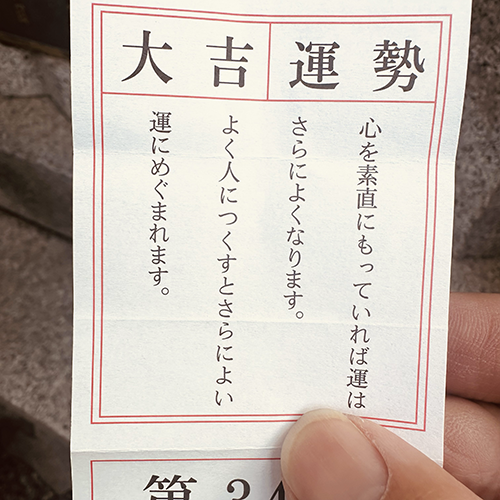 大吉 運勢
心を素直にもっていれば運は
さらによくなります。
よく人につくすとさらによい
運にめぐまれます。
第34